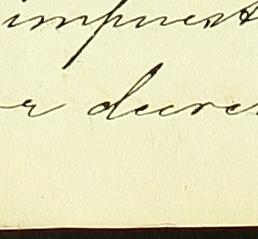 impuest
or decre